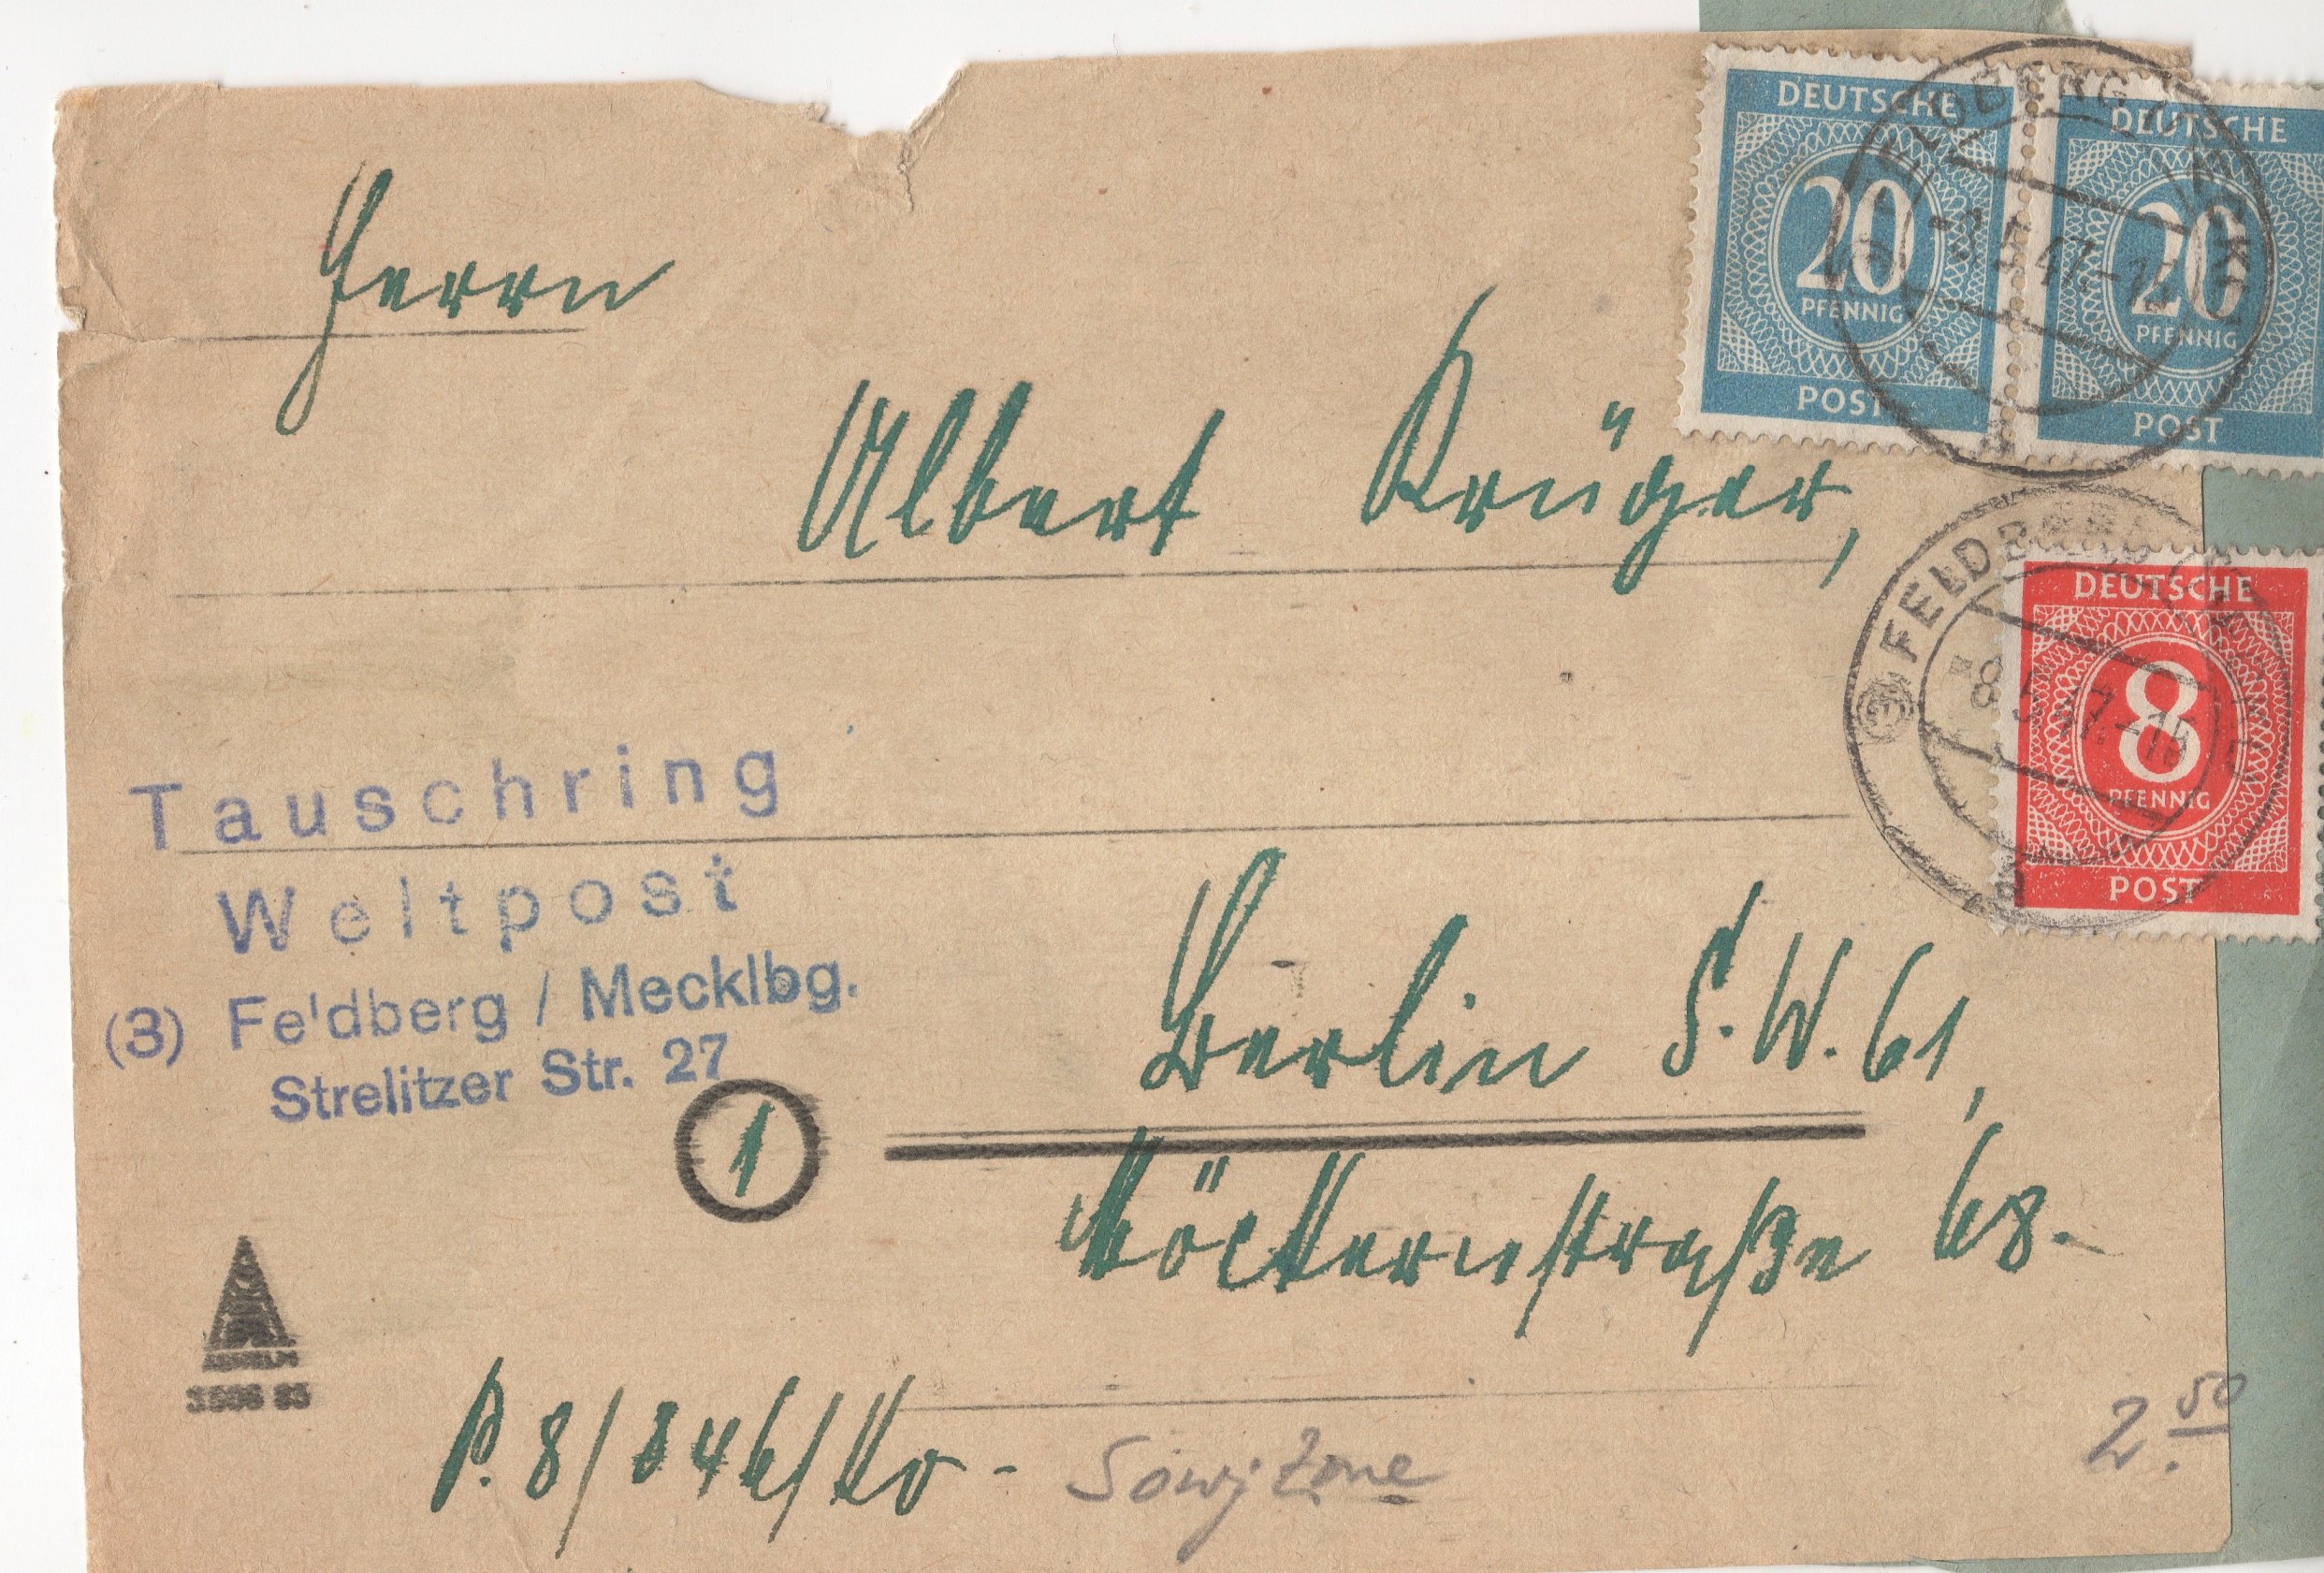 Herrn
Albert Krüger,
Berlin S.W. 61,
Möckernstraße 68.-
Tauschring
Weltpost
(3) Feldberg / Mecklbg.
Strelitzer Str. 27
1
P. 8/846/Ko-
Sowj Zone
2.50
DEUTSCHE
20
PFENNIG
POST
DEUTSCHE
20
PFENNIG
POST
DEUTSCHE
8
PFENNIG
POST
FELDBERG (MECKL)
-8.5.47.-15
FELDBERG (MECKL)
-8.5.47.-15